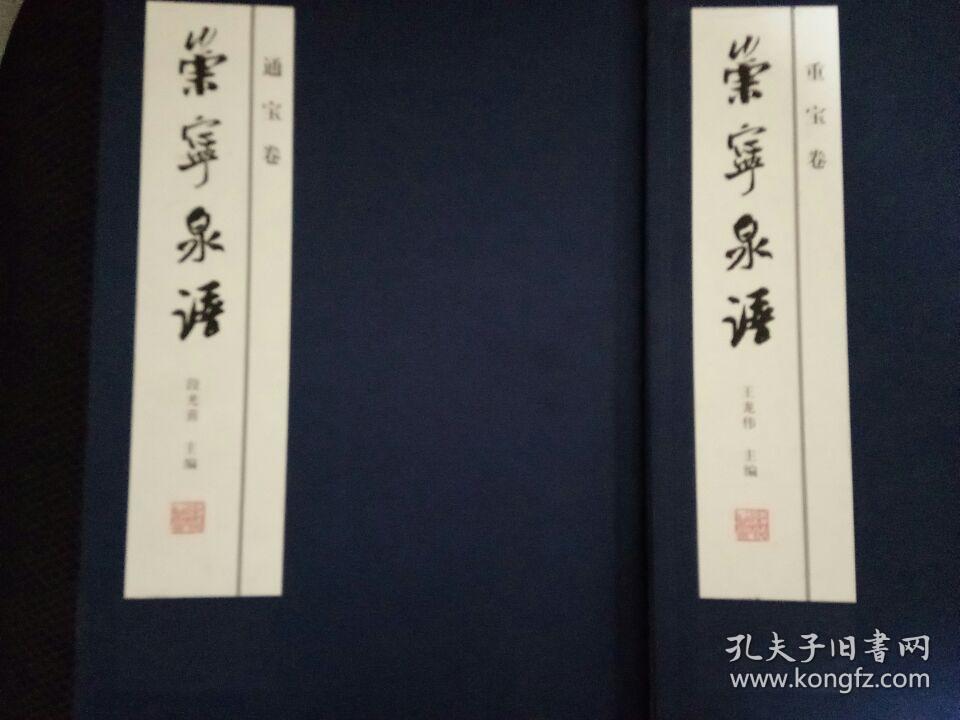 通宝卷
崇寧泉譜
主编
重宝卷
崇寧泉譜
王龙伟 主编
孔夫子旧書网
www.kongfz.com